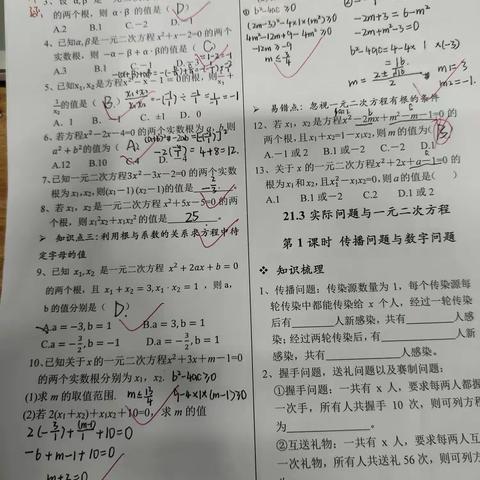 的两个根,则 α·β 的值是( D.
A.2 B.1 C.-2 D.-1
4、已知α,β是一元二次方程 x²+x-2=0 的两个
实数根,则 -α-β+α·β的值是( C )
5、已知x₁,x₂是方程x²-x-1=0的根,则
x₂的值是( B. )
A. 1 B. -1 C. ±1 D. 0
6、若方程x²-2x-4=0 的两个实数根为α,β,则
α²+b²的值为( A.
A.12 B.10 4+8=12.
7、已知一元二次方程3x²-3x-2=0的两个实数
根为x₁,x₂,则(x₁-1)(x₂-1)的值是 -2/3.
8、若x₁,x₂是一元二次方程 x²+5x-5=0的两
个根,则 x₁²x₂+x₁x₂²的值是 25 .
知识点三:利用根与系数的关系求方程中待
定字母的值
9、已知 x₁,x₂ 是一元二次方程 x²+2ax+b=0
的两根,且 x₁+x₂=3,x₁·x₂=1 ,则 a,
b 的值分别是( D. )
A.a=-3,b=1 B.a=3,b=1
C.a=-3/2,b=-1 D.a=-3/2,b=1
10、已知关于x的一元二次方程x²+3x+m-1=0
的两个实数根分别为 x₁, x₂. b²-4ac≥0
(1)求 m 的取值范围. m≤13/4 9-4×1×(m-1)≥0
(2)若 2(x₁+x₂)+x₁x₂+10=0, 求 m 的值
2(-3/1)+(m-1)/1+10=0
-6+m-1+10=0
m+3=0
b²-4ac≥0
(2m-3)²-4×1×(m²)≥0
4m²-12m+9-4m²≥0
-12m≥-9
m≤3/4
-2m+3=6-m²
-2m+m²-3=0
b²-4ac=4-4×1×(-3)
=16.
m₁=3
m₂=-1.
易错点:忽视一元二次方程有根的条件
12、若 x₁,x₂是方程x²-2mx+m²-m-1=0 的
两个根,且x₁+x₂=1-x₁x₂,则 m 的值为( B
A.-1 或 2 B.1 或-2 C.-2 D.1
13、关于 x 的一元二次方程x²+2x+a-1=0 的
根为 x₁和 x₂,且x₁²-x₁x₂=0,则 a 的值是( )
A.1 B.1 或-2 C.2 D.1 或 2
21.3 实际问题与一元二次方程
第 1 课时 传播问题与数字问题
❖ 知识梳理
1、传播问题:传染源数量为 1,每个传染源每
轮传染中都能传染给 x 个人,经过一轮传染
后有________人新感染,共有________人感
染;经过两轮传染后,有________人新
感染,共有________人感染。
2、握手问题,送礼问题以及赛制问题:
①握手问题:一共有 x 人,要求每两人都握
一次手,所有人共握手 10 次,则可列方程
为________。
②互送礼物:一共有 x 人,要求每两人互
一次礼物,所有人共送礼 56 次,则可列方